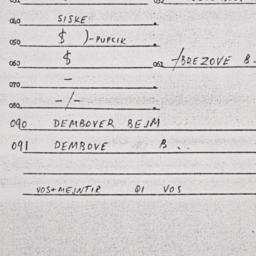 040 SISKE
050 $ )-PUPCIK
060 $ 061 /BREZOVE B.
070 -
080 -/-
090 DEMBOVER BEJM
091 DEMBOVE B..
VOS+MEJNTIR DI VOS